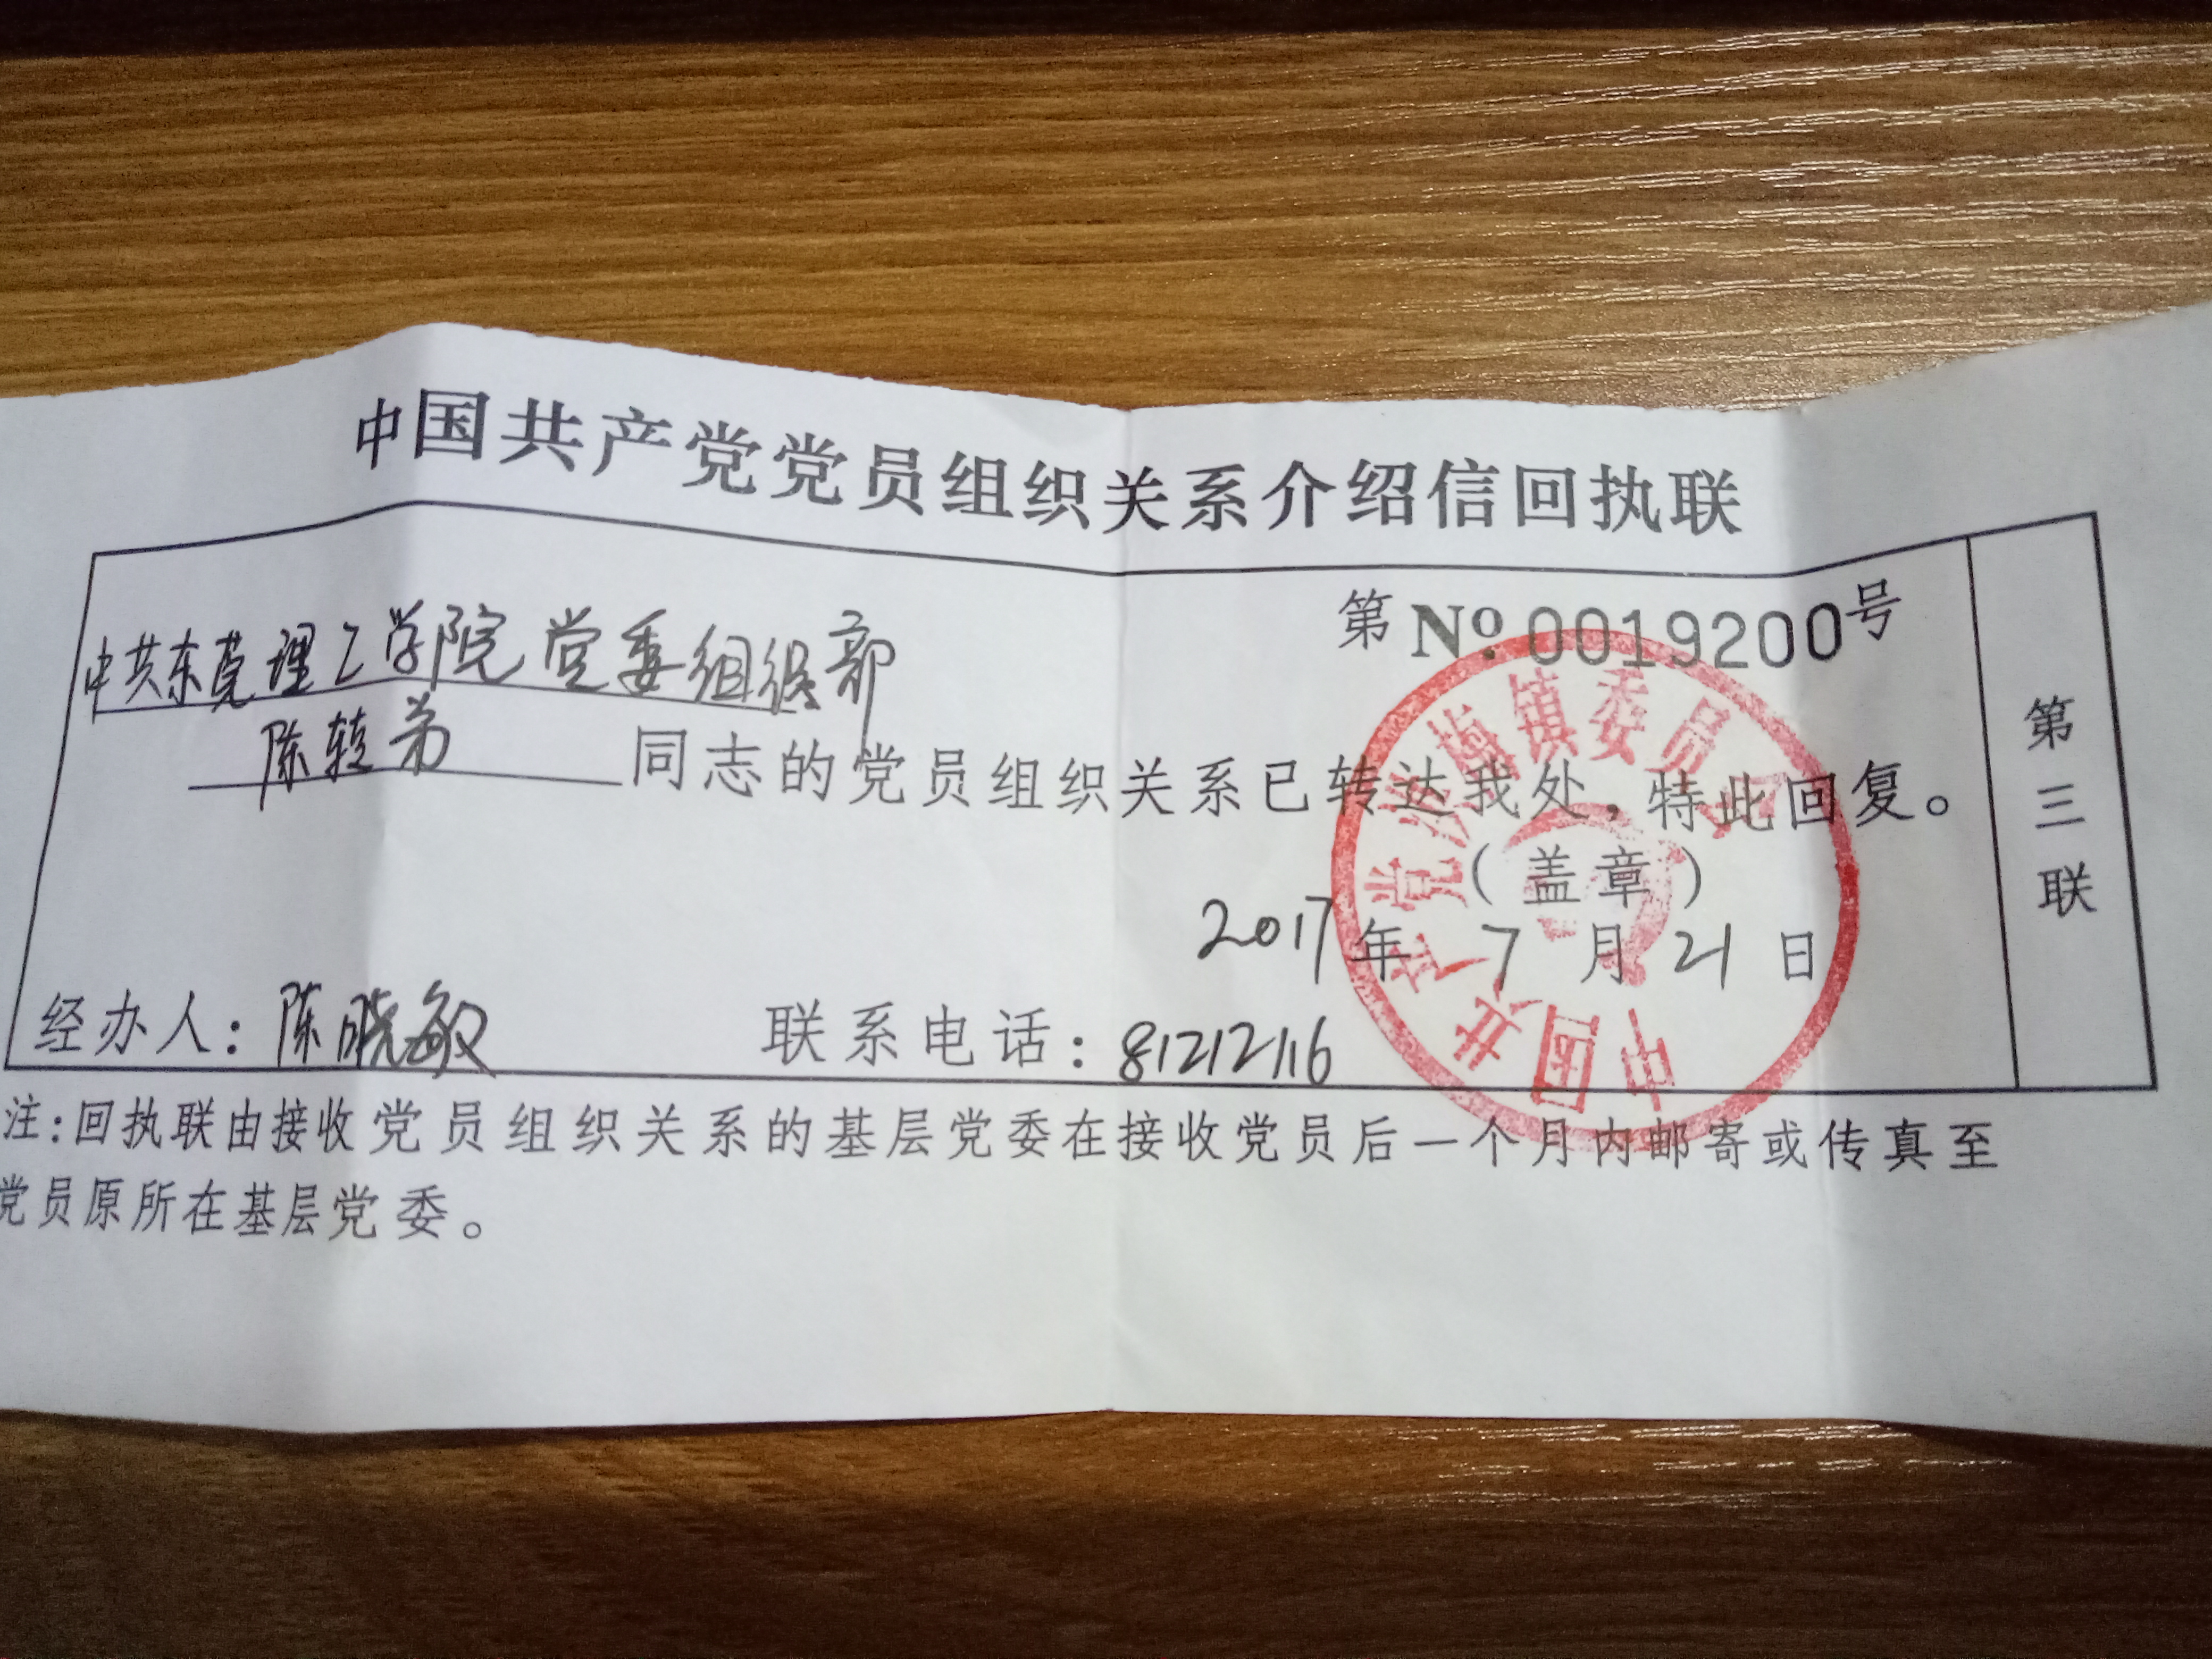 中国共产党党员组织关系介绍信回执联
第 No 0019200 号
中共东莞理工学院党委组织部
陈转弟 同志的党员组织关系已转达我处，特此回复。
（盖章）
2017 年 7 月 21 日
经办人：陈晓敏 联系电话：81212116
第三联
注：回执联由接收党员组织关系的基层党委在接收党员后一个月内邮寄或传真至
党员原所在基层党委。
中国共产党洪梅镇委员会